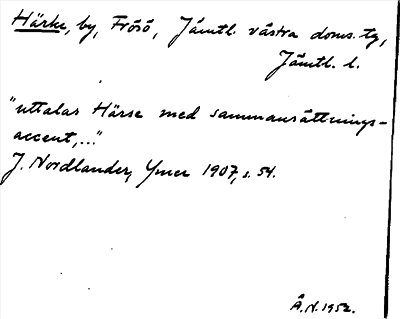 Härke, by, Frösö, Jämtl. västra doms. tg,
Jämtl. l.
"uttalas Härse med sammansättnings-
accent,..."
J. Nordlander, Ymer 1907, s. 54.
Å.N. 1952.